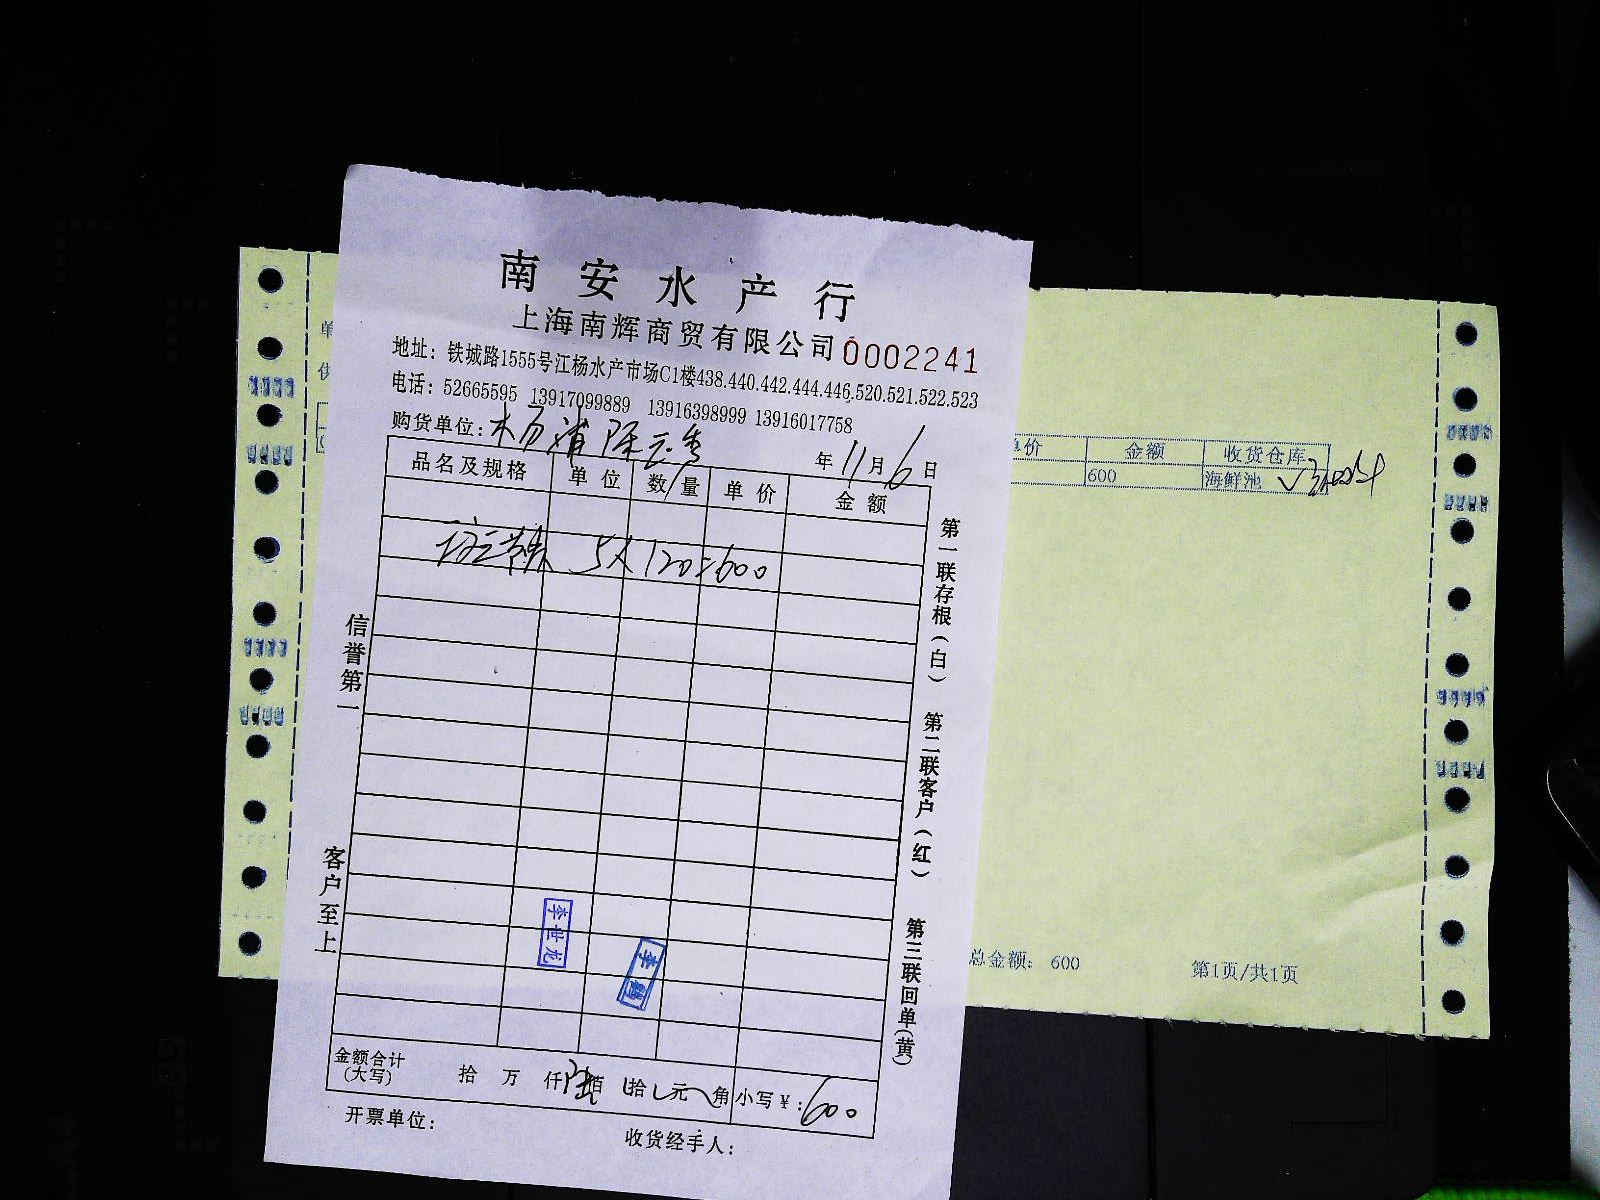 南安水产行
上海南辉商贸有限公司 0002241
地址：铁城路1555号江杨水产市场C1楼438.440.442.444.446.520.521.522.523
电话：52665595 13917099889 13916398999 13916017758
购货单位：杨浦
年11月6日
品名及规格 单位 数量 单价 金额
5×120=600
信誉第一
客户至上
第一联存根（白）
第二联客户（红）
第三联回单（黄）
李世龙
金额合计（大写） 拾 万 仟陆佰 拾 元 角 小写￥：600
开票单位：
收货经手人：
单
供
单价 金额 收货仓库
600 海鲜池
总金额： 600
第1页/共1页